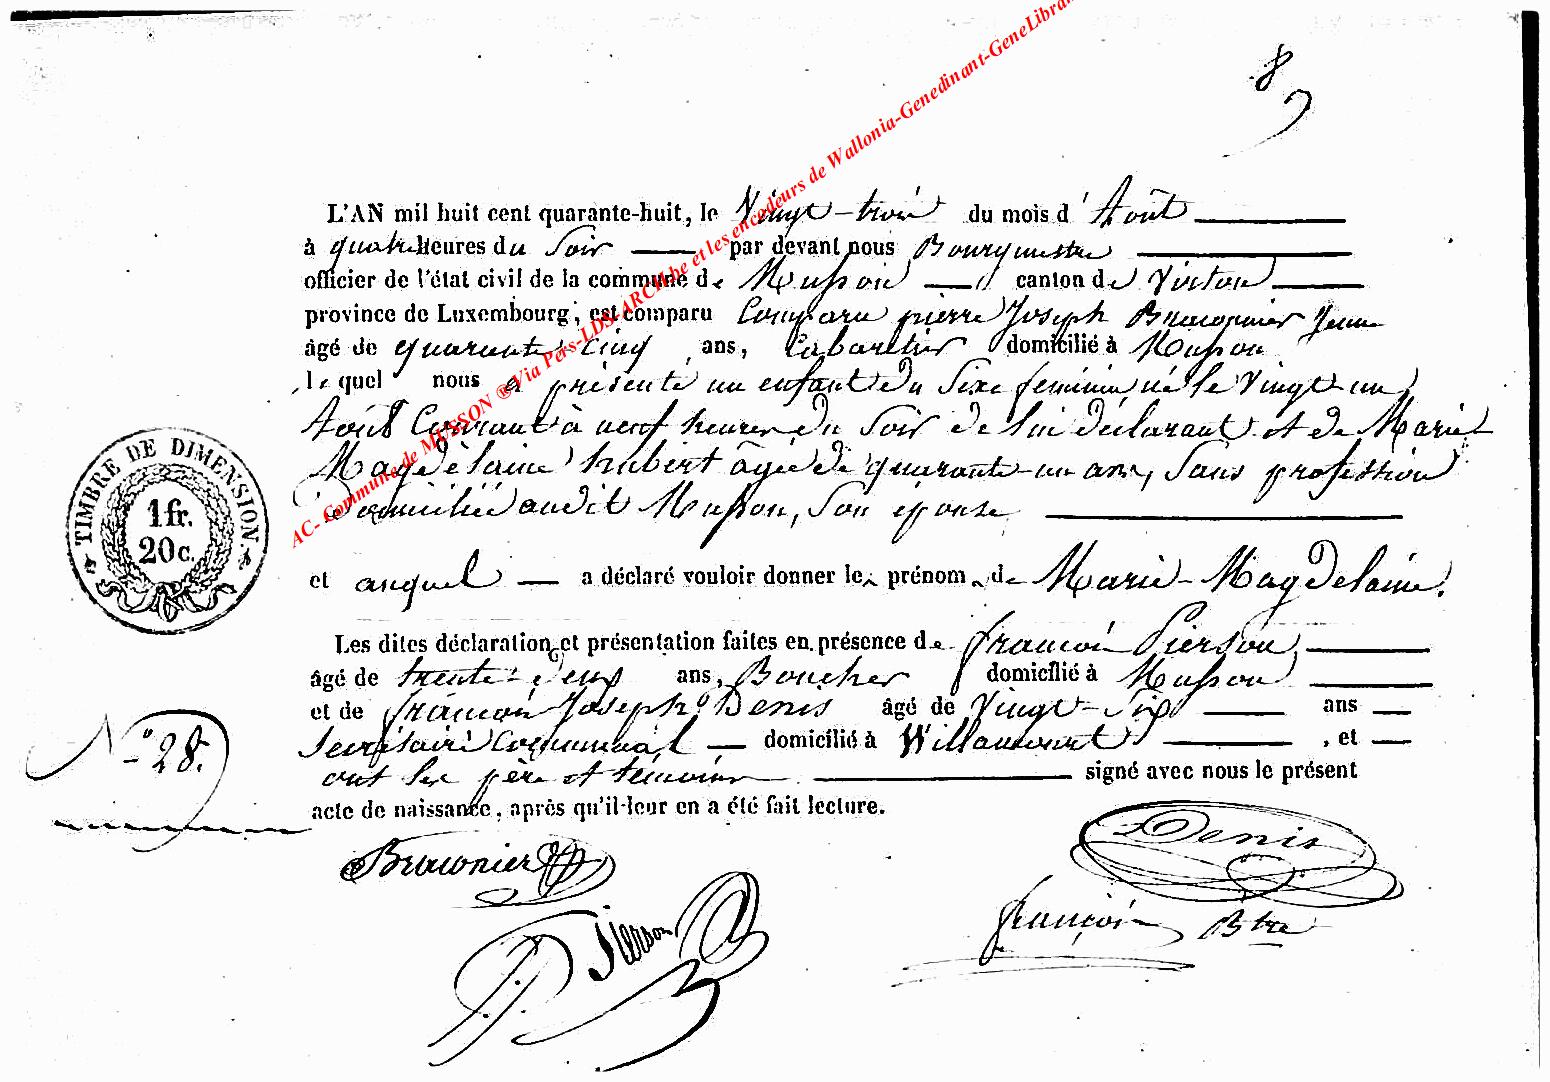 8
AC- Commune de MUSSON ® Via Pers-LDS-ARCH.be et les encodeurs de Wallonia-Genedinant-GeneLibran
L'AN mil huit cent quarante-huit, le Vingt-trois du mois d'Août
à quatre heures du Soir par devant nous Bourgmestre
officier de l'état civil de la commune de Musson canton de Virton
province de Luxembourg, est comparu Comparu pierre Joseph Braconnier Jeune
âgé de quarante cinq ans, Cabaretier domicilié à Musson
lequel nous a présenté un enfant du Sexe feminin, né le Vingt-un
Août Courant à neuf heures du Soir de lui déclarant et de Marie
Magdelaine hubert âgée de quarante-un ans, Sans profession
domiciliée audit Musson, Son épouse
et auquel a déclaré vouloir donner les prénoms de Marie-Magdelaine.
Les dites déclaration et présentation faites en présence de françois Pierson
âgé de trente-deux ans, Boucher domicilié à Musson
et de françois Joseph Denis âgé de Vingt-Six ans
Secrétaire Communal domicilié à Willancourt, et
ont les père et témoins signé avec nous le présent
acte de naissance, après qu'il leur en a été fait lecture.
TIMBRE DE DIMENSION.
1 fr.
20 c.
N° 28.
Braconnier
Denis
Pierson
françois Btre